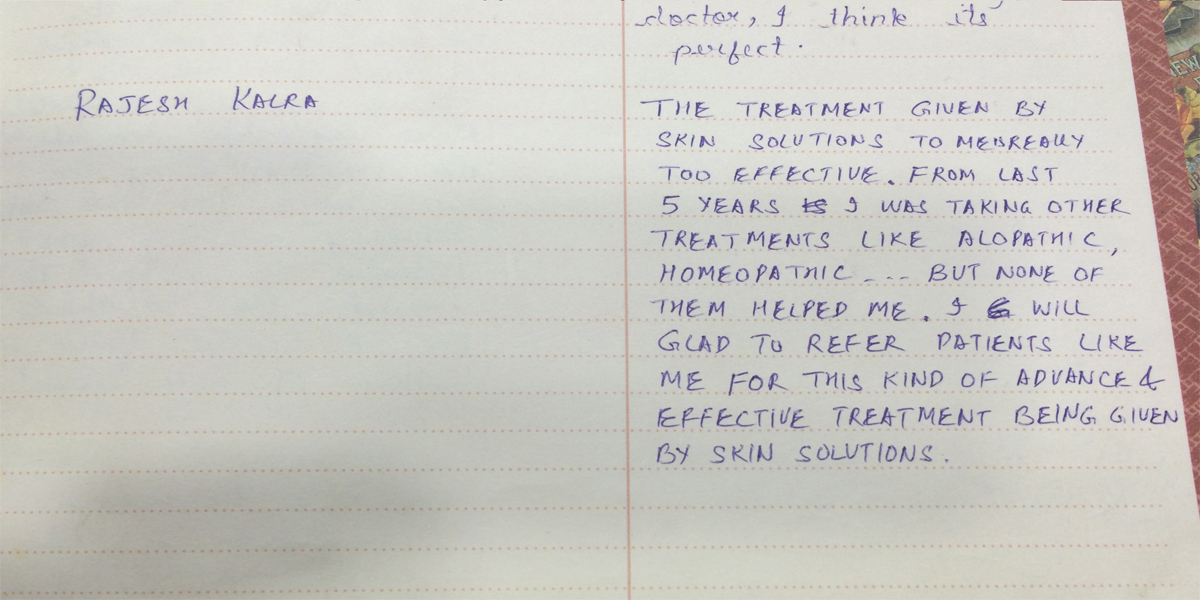 doctor, I think its
perfect.
RAJESH KALRA
THE TREATMENT GIVEN BY
SKIN SOLUTIONS TO ME IS REALLY
TOO EFFECTIVE. FROM LAST
5 YEARS I WAS TAKING OTHER
TREATMENTS LIKE ALOPATHIC,
HOMEOPATHIC --- BUT NONE OF
THEM HELPED ME. I WILL
GLAD TO REFER PATIENTS LIKE
ME FOR THIS KIND OF ADVANCE &
EFFECTIVE TREATMENT BEING GIVEN
BY SKIN SOLUTIONS.